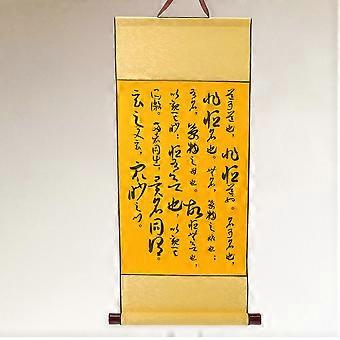 道可道也，非恒道也。名可名也，
非恒名也。無名，萬物之始也；
有名，萬物之母也。故恒無欲也，
以觀其妙；恒有欲也，以觀其
所徼。兩者同出，異名同謂。
玄之又玄，眾妙之門。